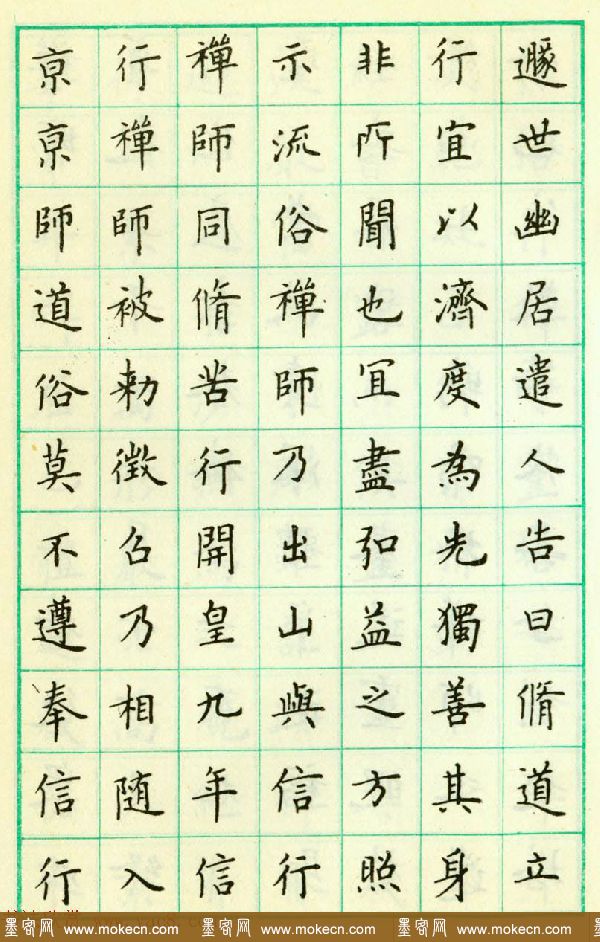 遯世幽居遣人告曰脩道立
行宜以濟度為先獨善其身
非所聞也宜盡弘益之方照
示流俗禪師乃出山與信行
禪師同脩苦行開皇九年信
行禪師被勅徵召乃相随入
亰亰師道俗莫不遵奉信行
墨客网 www.mokecn.com 墨客网 www.mokecn.com 墨客网 www.mokecn.com